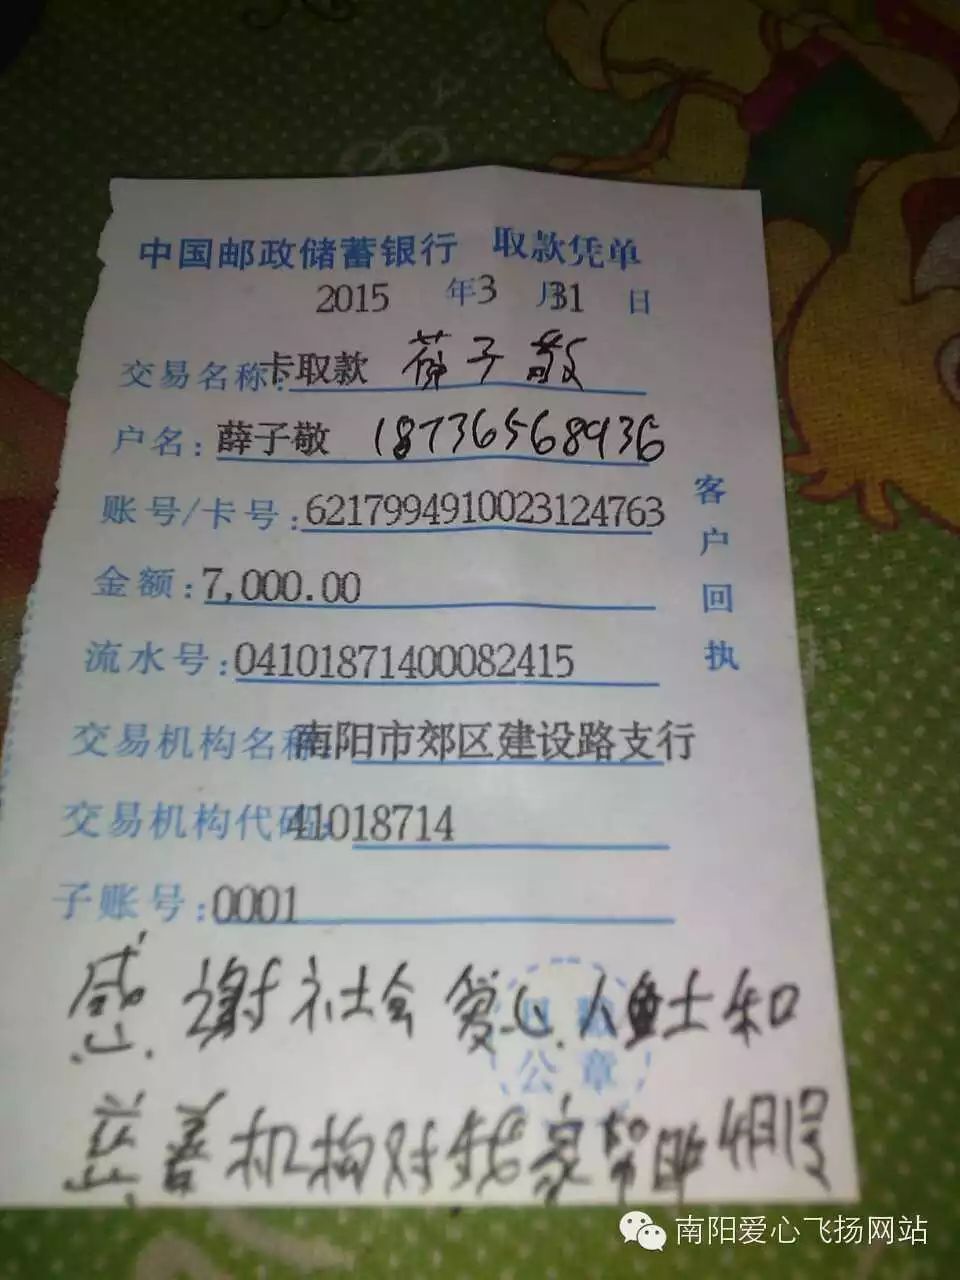 中国邮政储蓄银行 取款凭单
2015 年3 月31 日
交易名称:卡取款 薛子敬
户名:薛子敬 18736568936
账号/卡号:6217994910023124763
金额:7,000.00
流水号:04101871400082415
交易机构名称:南阳市郊区建设路支行
交易机构代码:41018714
子账号:0001
客户回执
感谢社会爱心人士和
公章
慈善机构对我家帮助4月1号
南阳爱心飞扬网站